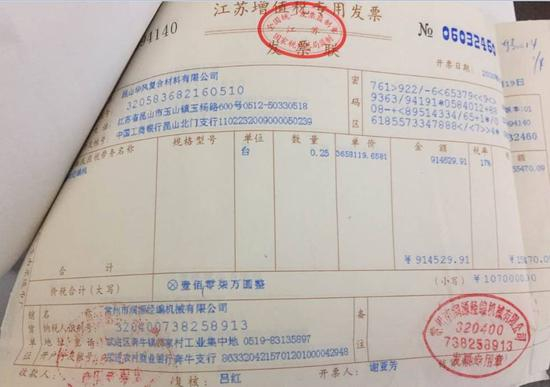 江苏增值税专用发票
4140
全国统一发票监制章
江苏
国家税务总局监制
发票联
№ 05032460
开票日期:
19日
昆山华风复合材料有限公司
320583682160510
江苏省昆山市玉山镇玉杨路600号0512-50330518
中国工商银行昆山北门支行1102232009000050239
密码区
761>922/-6<65379<<9<
9363/94191*0584012<6
-0+<89514334/65+1*/0
6185573347888</<7>>4*
:01
32460
税劳务名称
规格型号
单位
数量
单价
金额
税率
台
0.25
3658119.6581
914529.91
17%
55470.09
¥914529.91
合计
价税合计(大写)
⊗壹佰零柒万圆整
(小写)
¥1070000
常州市润源经编机械有限公司
320400738258913
武进区奔牛镇
村工业集中地 0519-83135897
农村商业银行奔牛支行
收款人:
复核:
吕红
开票人:
谢亚芳
常州市润源经编机械有限公司
320400
738258913
发票专用章